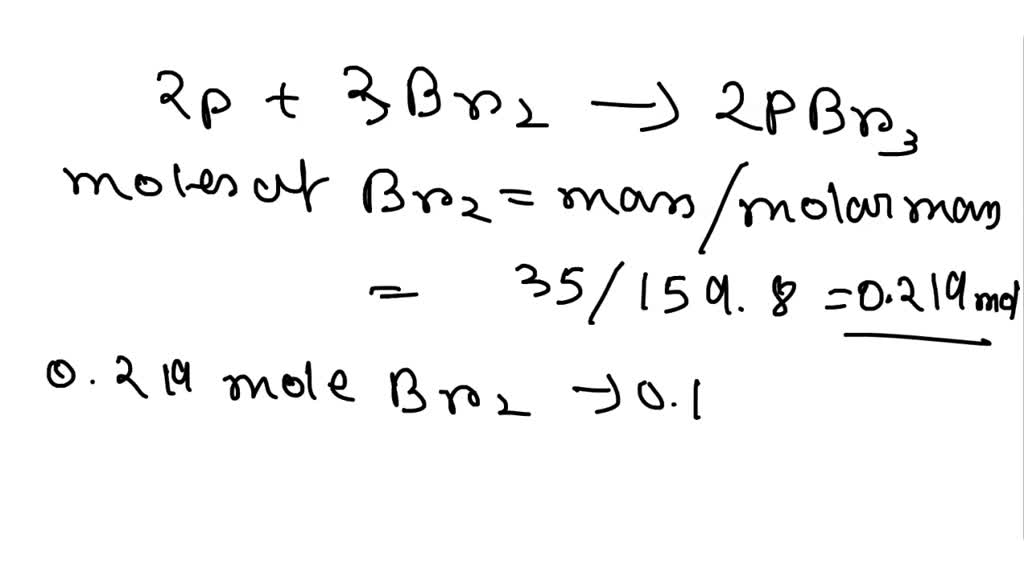 2P + 3Br2 → 2PBr3
moles of Br2 = mass/molar mass
= 35/159.8 = 0.219 mol
0.219 mole Br2 → 0.1